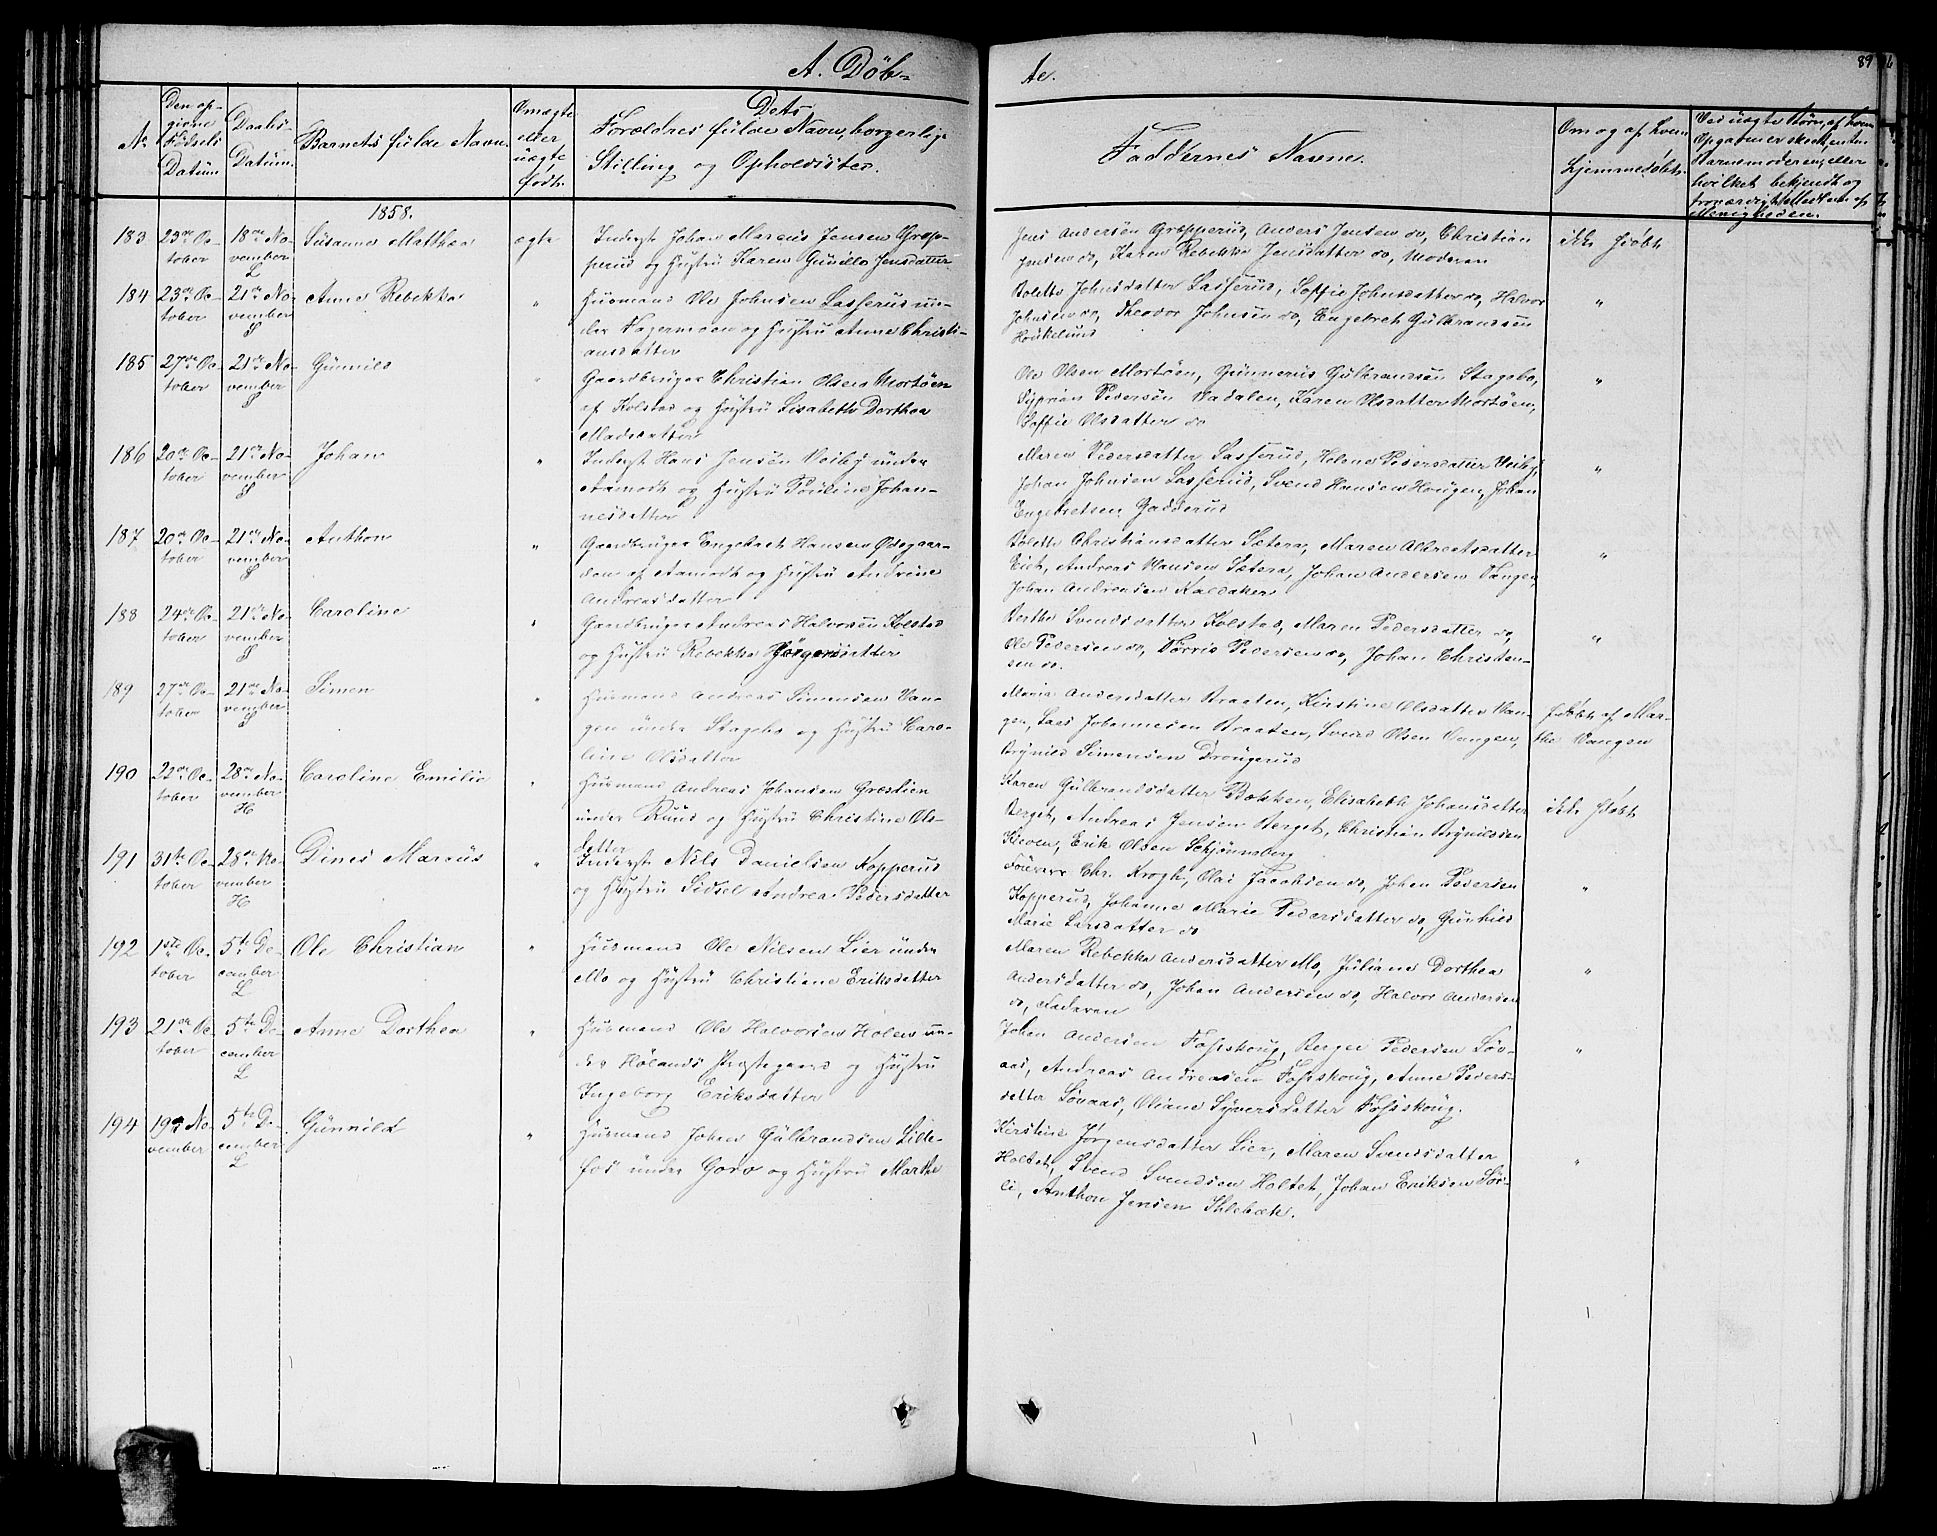 A. Døb-
te.
89
No
Den op-
givne
Fødsels
Datum
Daabs-
Datum.
Barnets fulde Navn.
Om ægte
eller
uægte
født.
Dets
Forældres fulde Navn, borgerlige
Stilling og Opholdssted.
Faddernes Navne.
Om og af hvem
hjemmedøbt.
Ved uægte Børn, af hvem
Opgaven er skeet, enten
Barnemoderen, eller
hvilket bekjendt og
troværdigt Medlem af
Menigheden.
1858.
183 23de Oc-
tober
18de No-
vember
L
Susanne Matthea
ægte
Inderst Johan Marcus Jensen Græp-
perud og Hustru Karen Gunille Jensdatter
Jens Andersen Græpperud, Anders Jensen do, Christian
Jensen do, Karen Rebekka Jensdatter do, Moderen
ikke hjdbt
184 23de Oc-
tober
21de No-
vember
S
Anne Rebekka
"
Husmand Ole Johnsen Lasserud un-
der Fagermoen og Hustru Anne Christi-
ansdatter
Bolette Johnsdatter Lasserud, Soffie Johnsdatter do, Halvor
Johnsen do, Theodor Johnsen do, Engebret Gulbrandsen
"
185 27de Oc-
tober
21de No-
vember
S
Gunnild
"
Gaardbruger Christian Olsen Mortøen
af Kolstad og Hustru Lisabeth Dorthea
Madsdatter
Ole Olsen Mortøen, Gunnerius Gulbrandsen Stagebo,
Syprian Pedersen Vadalen, Karen Olsdatter Mortøen,
Soffie Olsdatter do
"
186 20de Oc-
tober
21de No-
vember
S
Johan
"
Inderst Hans Jensen Veiby under
Aamodt og Hustru Pouline Johan-
nesdatter
Maren Pedersdatter Lasserud, Helene Pedersdatter Veiby,
Johan Johnsen Lasserud, Svend Hansen Hougen, Johan
Engebretsen Gadderud
"
187 20de Oc-
tober
21de No-
vember
S
Anthon
"
Gaardbruger Engebret Hansen Ødegaar-
den af Aamodt og Hustru Andrine
Andreasdatter
Bolette Christiansdatter Sætera, Maren Albretsdatter
Eid, Andreas Hansen Sætera, Johan Andersen Vangen,
Johan Andreasen Kaldaker
"
188 24de Oc-
tober
21de No-
vember
S
Caroline
"
Gaardbruger Andreas Halvorsen Kolstad
og Hustru Rebekka Jørgensdatter
Berthe Svendsdatter Kolstad, Maren Pedersdatter do,
Ole Pedersen do, Torris Pedersen do, Johan Christen-
sen do.
"
189 27de Oc-
tober
21de No-
vember
S
Simen
"
Husmand Andreas Simensen Van-
gen under Stagebo og Hustru Caro-
line Olsdatter
Maria Andersdatter Braaten, Kirstine Olsdatter Van-
gen, Lars Johannesen Braaten, Svend Olsen Vangen,
Brynild Simensen Drougerud
hjdbt af Mar-
the Vangen
190 22de Oc-
tober
28de No-
vember
H
Caroline Emilie
"
Husmand Andreas Johansen Græstien
under Ruud og Hustru Christine Ols-
datter
Karen Gulbrandsdatter Bækken, Elisabeth Johansdatter
Berget, Andreas Jensen Berget, Christian Brynildsen
Kleven, Erik Olsen Schjønnsberg
ikke hjdbt
191 31te Oc-
tober
28de No-
vember
H
Dines Marcus
"
Inderst Nils Danielsen Kopperud
og Hustru Sidsel Andrea Pedersdatter
Chr. Krogh, Olai Jacobsen do, Johan Pedersen
Kopperud, Johanne Marie Pedersdatter do, Gunhild
Marie Larsdatter do
"
192 1ste Oc-
tober
5te De-
cember
L
Ole Christian
"
Husmand Ole Nilsen Lier under
Mo og Hustru Christiane Eriksdatter
Maren Rebekka Andersdatter Mo, Juliane Dorthea
Andersdatter do, Johan Andersen do, Halvor Andersen
do, Faderen
"
193 21de Oc-
tober
5te De-
cember
L
Anne Dorthea
"
Husmand Ole Halvorsen Holen un-
der Hølands Præstegaard og Hustru
Ingeborg Eriksdatter
Johan Andersen Fosskoug, Berger Pedersen Løv-
aas, Andreas Andreasen Fosskoug, Anne Peders-
datter Løvaas, Oliane Syversdatter Fosskoug.
"
194 19de No-
vember
5te De-
cember
L
Gunnild
"
Husmand Johan Gulbrandsen Lille-
fos under Goro og Hustru Marthe
Kirstine Jørgensdatter Lier, Maren Svendsdatter
Holtet, Svend Svendsen Holtet, Johan Eriksen Sør-
li, Anthon Jensen Sklebæk.
"